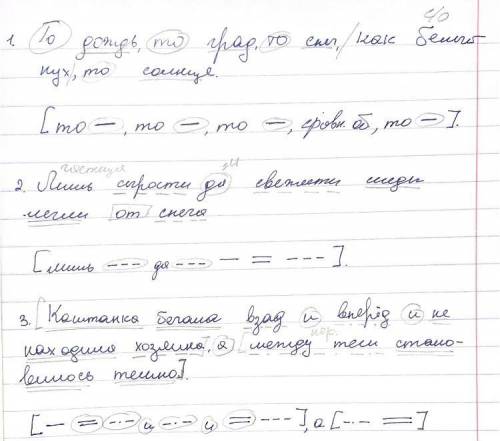 с/о
1. То дождь, то град, то снег, как белый
пух, то солнце.
[то —, то —, то —, сравн. об, то —].
частица
2. Лишь сырости да свежести следы
легли от снега
[лишь --- да --- — = ---].
3. [Каштанка бегала взад и вперёд и не
находила хозяина], а [между тем стано-
вилось темно].
[— = -·- и -·- и = ---], а [-·- =]